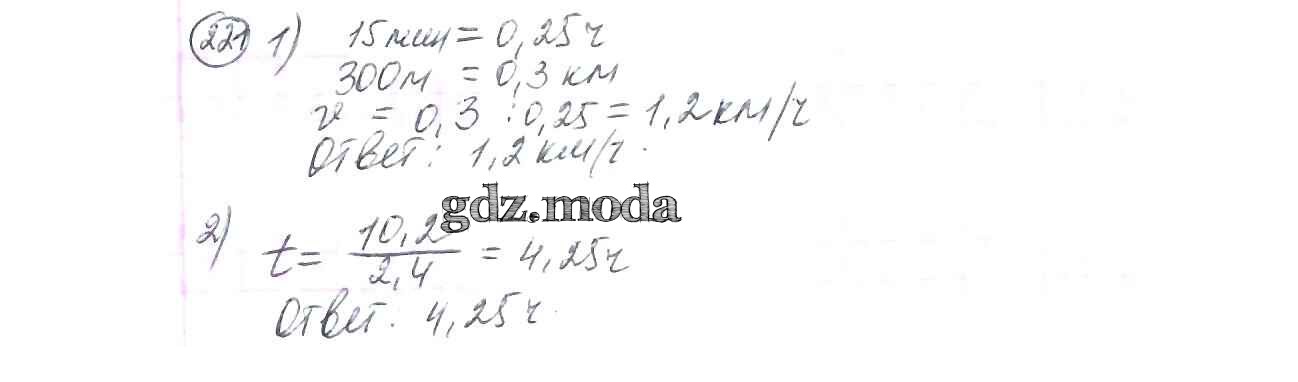 221 1) 15 мин = 0,25 ч
300 м = 0,3 км
v = 0,3 : 0,25 = 1,2 км/ч
Ответ: 1,2 км/ч.
gdz.moda
2) t = 10,2/2,4 = 4,25 ч
Ответ: 4,25 ч.